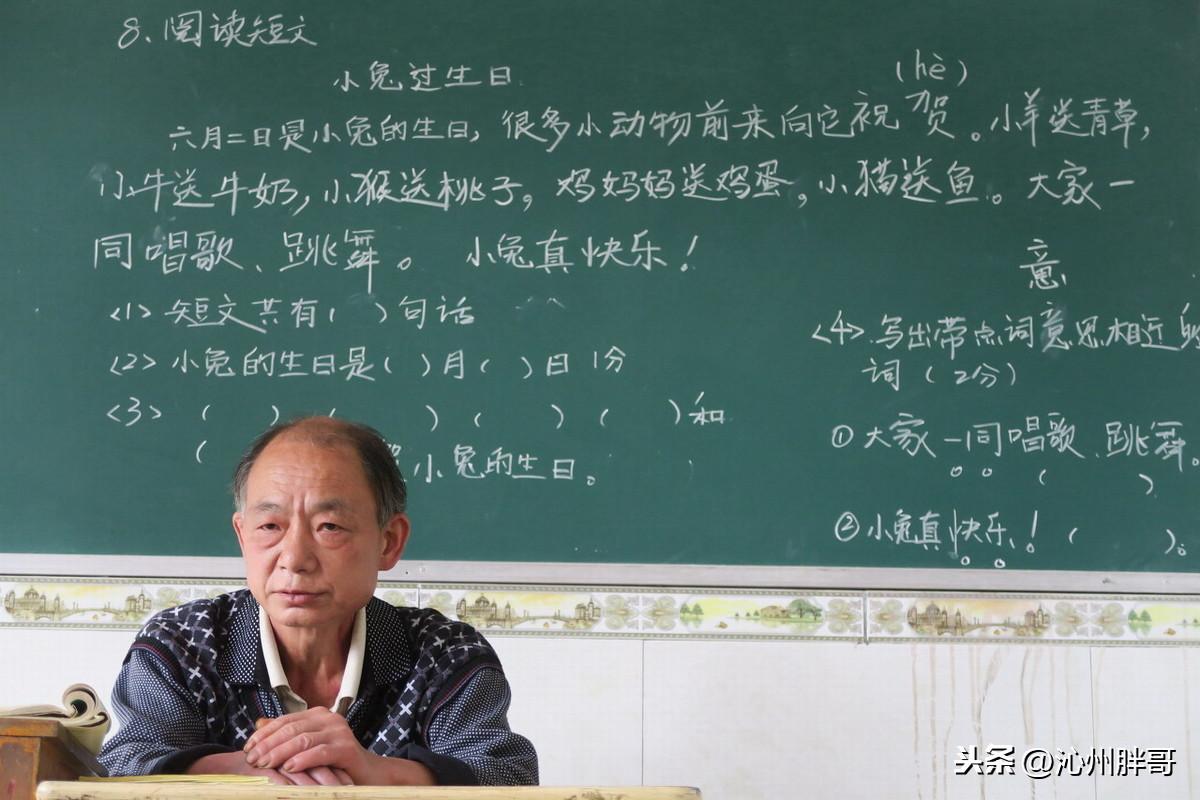 8、阅读短文
小兔过生日
(hè)
六月二日是小兔的生日，很多小动物前来向它祝贺。小羊送青草，
小牛送牛奶，小猴送桃子，鸡妈妈送鸡蛋，小猫送鱼。大家一
同唱歌、跳舞。 小兔真快乐！
<1> 短文共有( )句话
<2> 小兔的生日是( )月( )日 1分
<3> ( ) ( ) ( ) ( )和
( 小兔的生日。
意
<4> 写出带点词意思相近的
词（2分）
① 大家一同唱歌、跳舞。
( )
② 小兔真快乐！( )。
头条 @沁州胖哥